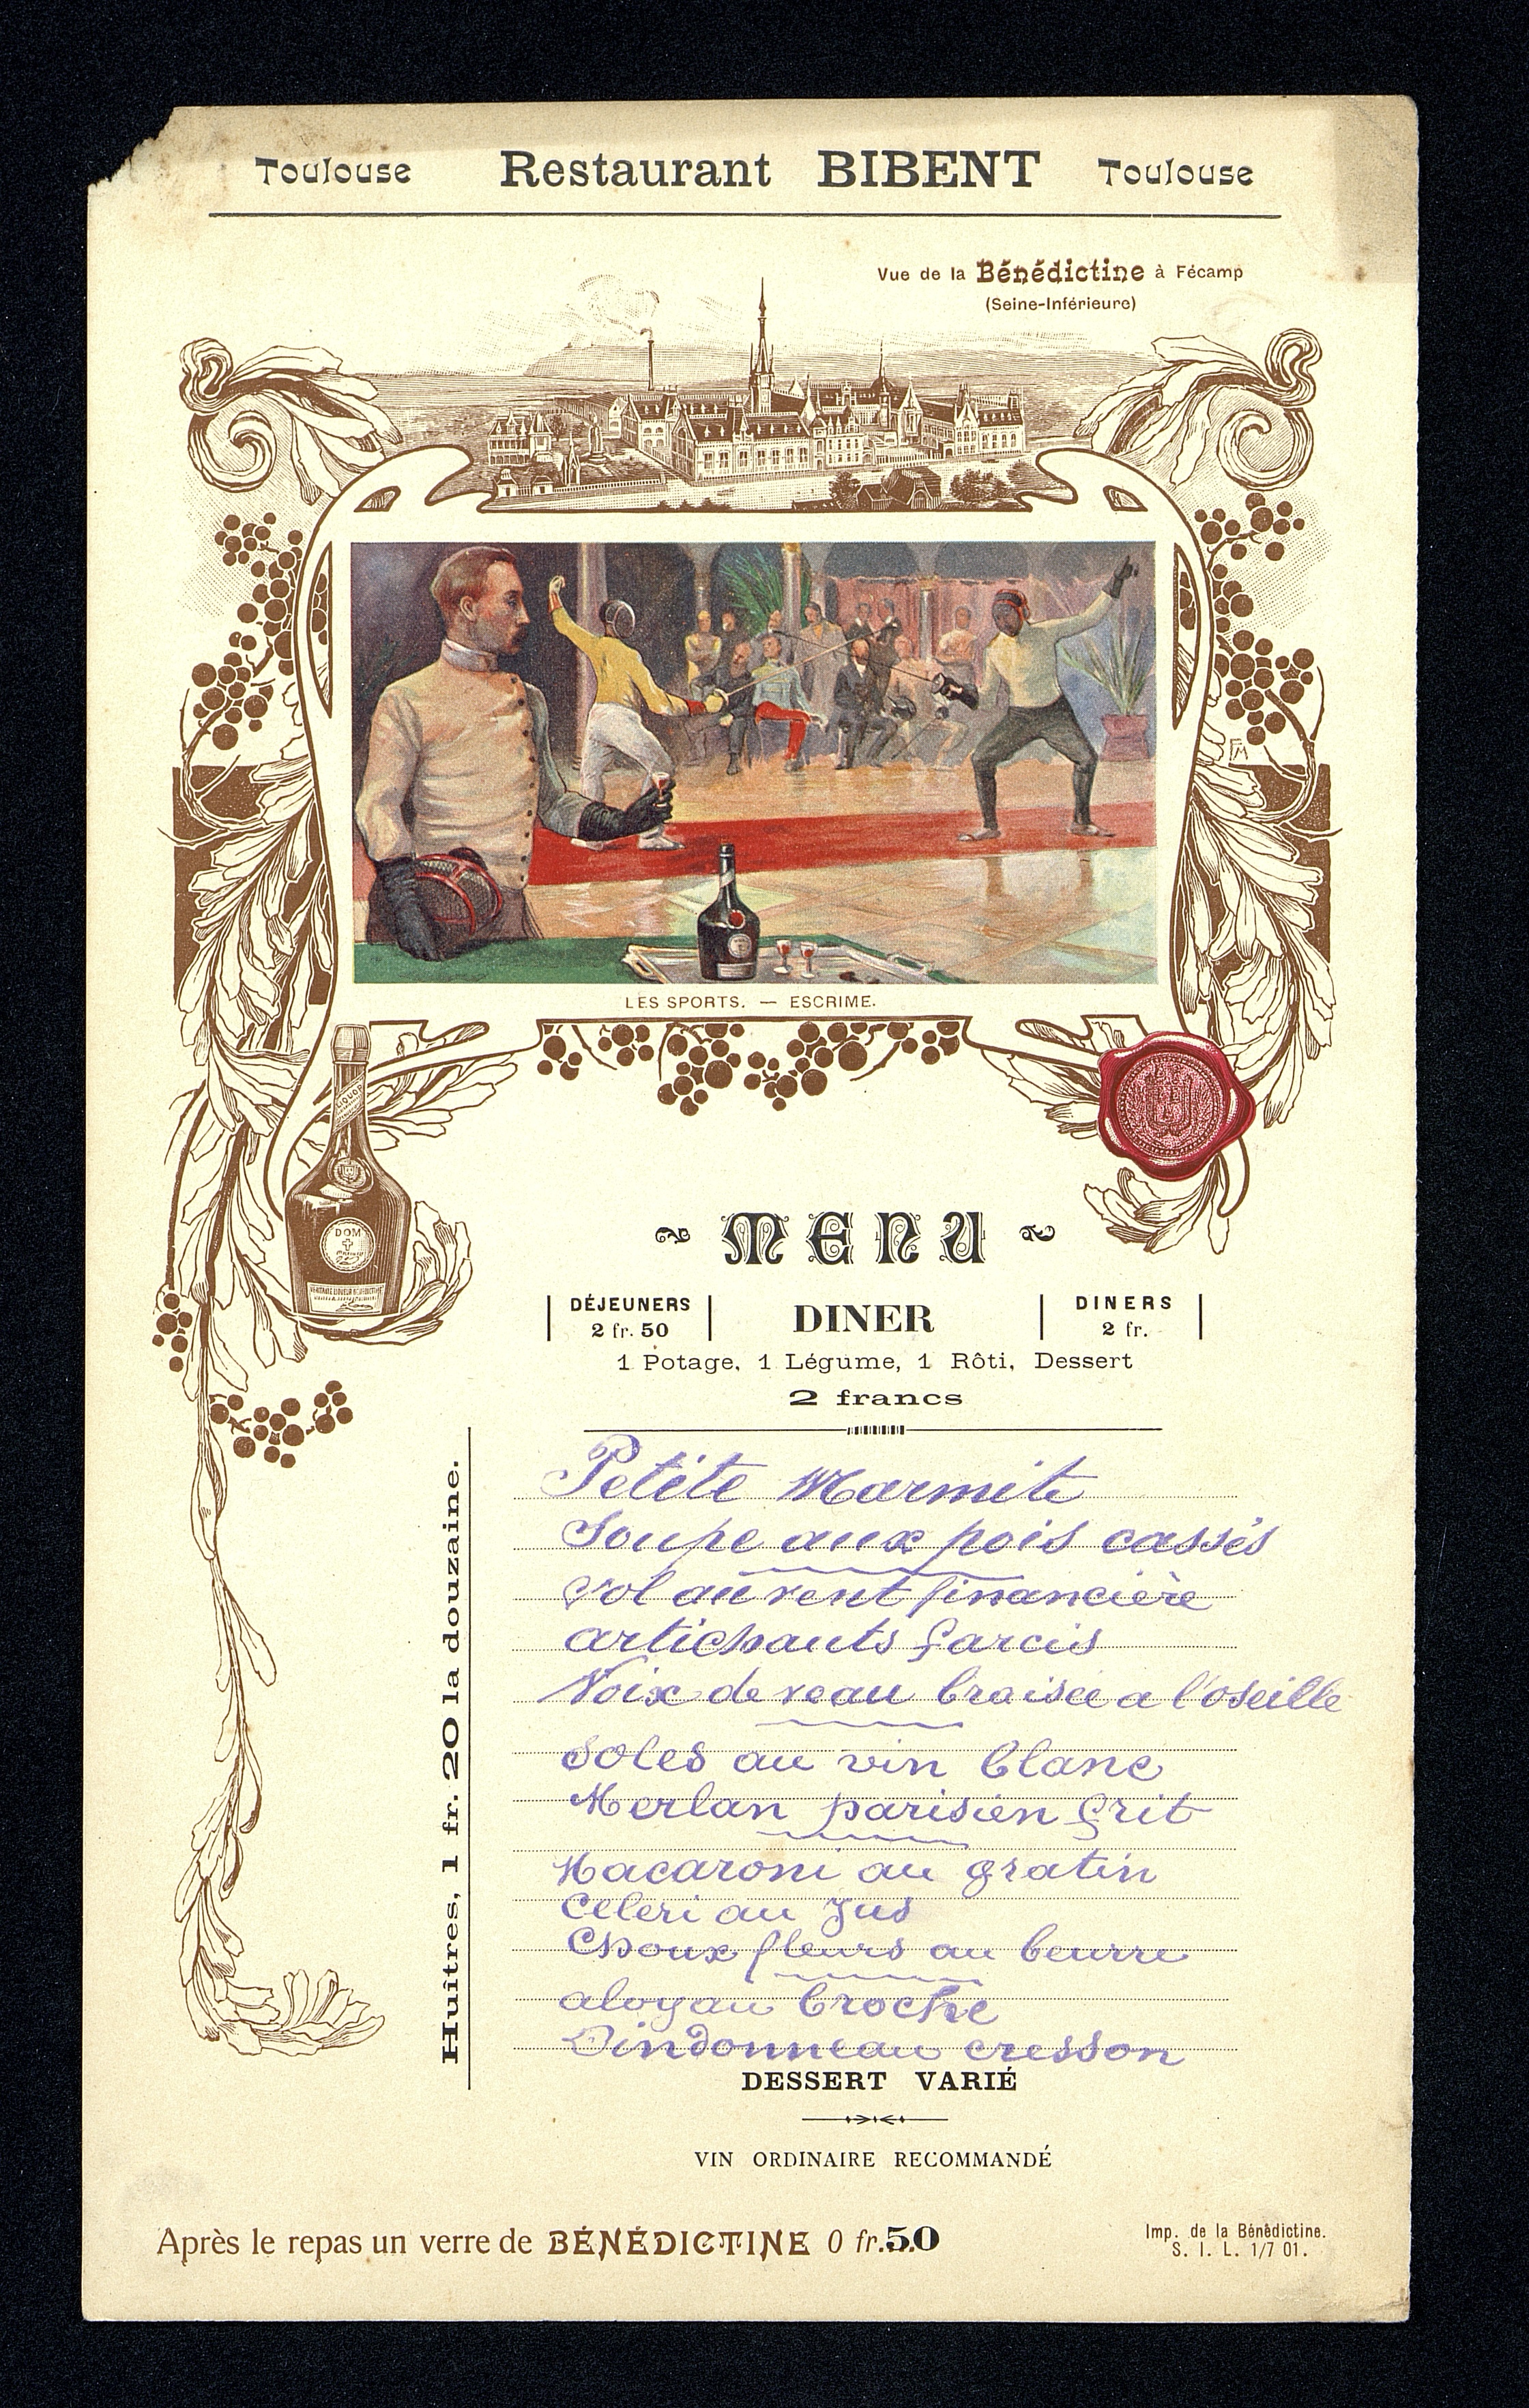 Toulouse Restaurant BIBENT Toulouse
Vue de la Bénédictine à Fécamp
(Seine-Inférieure)
FM
LES SPORTS. — ESCRIME.
LIQUOR
DOM
MENU
DÉJEUNERS
2 fr. 50
DINER
DINERS
2 fr.
1 Potage, 1 Légume, 1 Rôti, Dessert
2 francs
Huîtres, 1 fr. 20 la douzaine.
Petite Marmite
Soupe aux pois cassés
Vol au vent financière
artichauts farcis
Noix de veau braisée a l'oseille
Soles au vin blanc
Merlan parisien frit
Macaroni au gratin
Celeri au Jus
Choux fleurs au beurre
aloyau broche
Dindonneau cresson
DESSERT VARIÉ
VIN ORDINAIRE RECOMMANDÉ
Après le repas un verre de BÉNÉDICTINE 0 fr.50
Imp. de la Bénédictine.
S. I. L. 1/7 01.